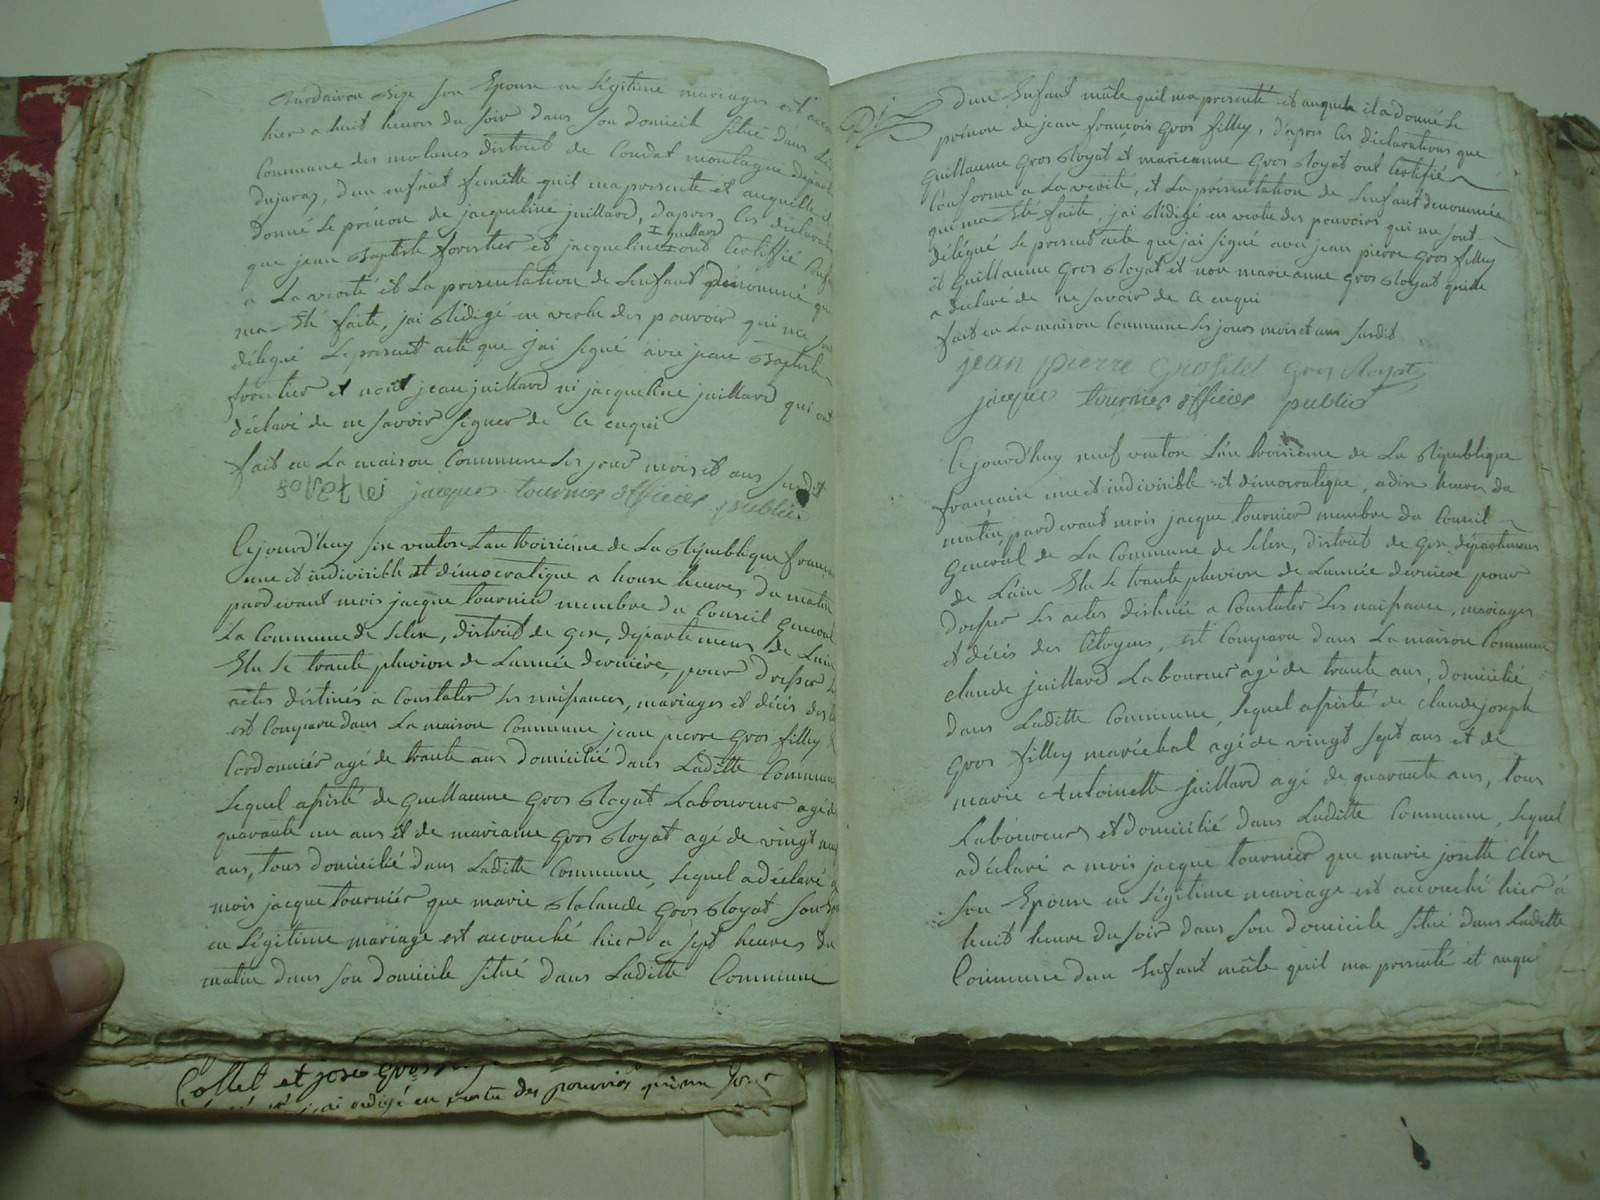 son Epouse en légitime mariages est
hier a huit heures du soir dans son domicile situé dans
Commune des molunes district de Condat montagne
dujuraz, d'un enfant femelle quil ma presente et auquelle
donné le prénon de jacqueline juillard, d'apres les
que jean Baptiste forestier et jacqueline juillard ont Certiffié
a La verité et La presentation de Lenfant dénommé
ma Eté faite, jai Rédigé en vertu des pouvoir qui me
délégué Le present acte que jai signé avec jean Baptiste
forestier et non jean juillard ni jacqueline juillard qui ont
déclaré de ne savoir signer de Ce enqui
fait en La maison Commune les jour mois et ans susdit
jacques tournier officier public
Cejourd'huy six ventose Lan troisième de La République
une et indivisible et démocratique a honse heures du matin
pardevant mois jacque tournier membre du Conseil General
La Commune de Lelex, district de Gex, département de Lain
Elu le trante pluviose de Lannée derniere, pour dresser
actes déstinés a Constater les naissances, mariages et décès des
est Comparu dans La maison Commune jean pierre Gros fillex
Cordonnier agé de trante ans domicilié dans Laditte Commune
Lequel assisté de Guellaume Gros Royat Laboureur agé de
quarante un ans et de marianne Gros Royat agé de vingt
ans, tous domicilié dans Laditte Commune, Lequel a déclaré
mois jacque tournier que marie Rolande Gros Royat
en Légitime mariage est accouché hier a sept heures du
matin dans son domicile situé dans Laditte Commune
d'un Enfant mâle quil ma presenté et auquele il a donné le
prénon de jean françois Gros fillex, d'apres les déclarations que
Guillaume Gros Royat et marieanne Gros Royat ont Certifié
Conforme a La verité, et La présentation de Lenfant denommée
qui ma Eté faite, jai Rédigé en vertu des pouvoirs qui me sont
délégué le present acte que jai signé avec jean pierre Gros fillex
et Guillaume Gros Royat et non marieanne Gros Royat quelle
a déclaré de ne savoir de Ce enqui
fait en La maison Commune les jours mois et ans susdit
jean pierre Grosfilet Gros Royat
jacque tournier officier public
Cejourd'huy neuf ventose Lan troisième de La République
française une et indivisible et démocratique, a dix heures du
matin pardevant mois jacque tournier membre du Conseil
General de La Commune de Lelex, district de Gex, département
de Lain Elu le trante pluviose de Lannée derniere pour
dresser les actes destinée a Constater les naissance, mariages
et décès des Citoyens, est Comparu dans La maison Commune
claude juillard Laboureur agé de trante ans, domicilié
dans Laditte Commune, Lequel assisté de Claude joseph
Gros fillex maréchal agé de vingt sept ans et de
marie Antoinette juillard agé de quarante ans, tous
Laboureurs et domicilié dans Laditte Commune, Lequel
a déclaré a mois jacque tournier que marie josette
son Epouse en Légitime mariage est accouché hier à
huit heure du soir dans son domicile situé dans Laditte
Commune d'un Enfant mâle quil ma presenté et auqu
Collet et josé Gros
jai redigé en vertu des pouvoirs qui me sont